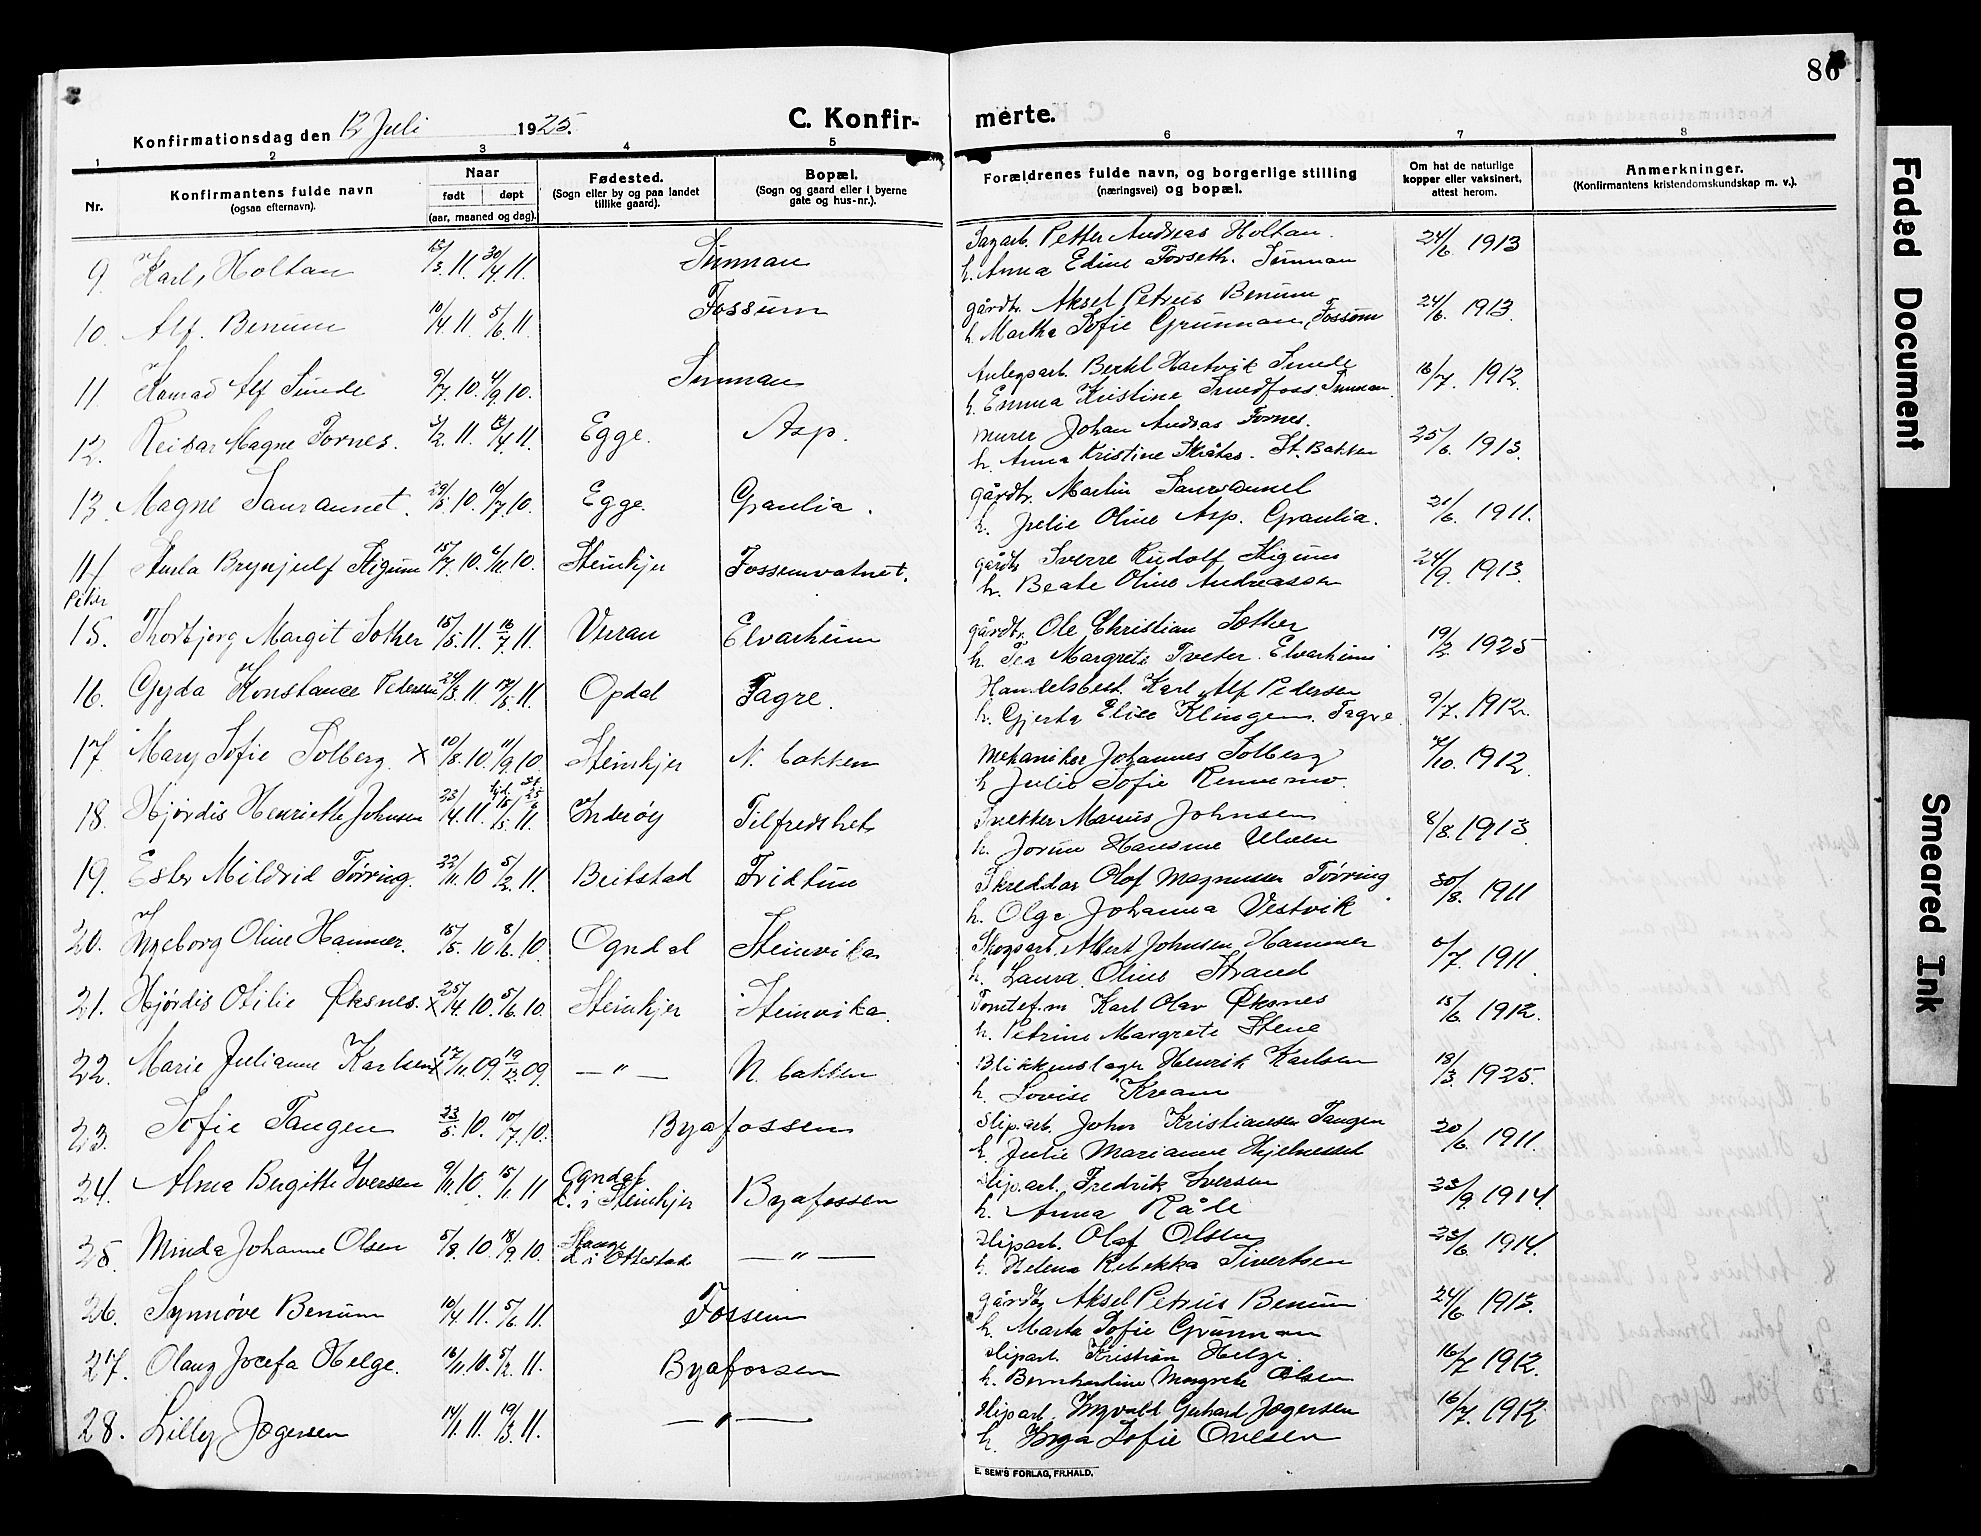 86
Konfirmationsdag den 12 Juli 1925.
C. Konfir- merte.
1 2 3 4 5 6 7 8
Nr.
Konfirmantens fulde navn
(ogsaa efternavn).
Naar
født døpt
(aar, maaned og dag).
Fødested.
(Sogn eller by og paa landet
tillike gaard).
Bopæl.
(Sogn og gaard eller i byerne
gate og hus-nr.).
Forældrenes fulde navn, og borgerlige stilling
(næringsvei) og bopæl.
Om hat de naturlige
kopper eller vaksinert,
attest herom.
Anmerkninger.
(Konfirmantens kristendomskundskap m. v.).
9. Karl Holtan 11. 30/4 11. Sunnan Sagarb. Petter Andreas Holtan. 24/6 1913
h. Anna Edine Forseth. Sunnan
10. Alf Benum 10/4 11. 5/6 11. Fossum gårdbr. Aksel Petrus Benum 24/6 1913.
h. Martha Sofie Grunnan, Fossum
11. Konrad Alf Sunde 9/7 10. 4/9 10. Sunnan Anlegsarb. Bertel Hartvik Sunde 16/7 1912.
h. Emma Kristine Smedfoss. Sunnan.
12. Reidar Magne Fornes. 11. 11. Egge. Asp. murer Johan Andras Fornes. 25/6 1913.
h. Anna Kristine St. Bakken
13. Magne Sauraunet. 29/3 10. 10/7 10. Egge. Graulia. gårdbr. Martin Sauraunet 21/6 1911.
h. Julie Oline Asp. Graulia.
14 Sturla Brynjulf Stigum 15/7 10. 6/11 10. Steinkjer Fossemvatnet. gårdb Sverre Rudolf Stigum 24/9 1913.
Peter h. Beate Oline Andreassen
15. Thorbjørg Margit Sother 15/5 11. 16/7 11. Verran Elvarheim gårdbr. Ole Christian Sother 19/2 1925
h. Tea Margrete Tveter. Elvarheim
16. Gyda Konstance Pedersen 24/3 11 14/5 11. Opdal Fagre. Handelsbest. Karl Alf Pedersen 9/7 1912.
h. Gjerta Elise Klingen. Fagre.
17. Mary Sofie Solberg. x 10/8 10. 11/9 10 Steinkjer N. bakken mekaniker Johannes Solberg 4/10. 1912.
h Julie Sofie Rennemo.
18. Hjørdis Henriette Johnsen 23/4 11. 15/5 11. Inderøy Tilfredshet Snekker Marius Johnsen 8/8. 1913.
h. Jorun Hansine Ulven
19. Ester Mildrid Tørring. 22/11 10 5/2 11. Beitstad Fridtun Skredder Olof Magnussen Tørring 30/8. 1911
h. Olga Johanna Vestvik
20. Ingeborg Oline Hammer. 15/5. 10 8/6. 10. Ogndal Steinvika Skogsarb. Albert Johnsen Hammer 6/7. 1911.
h. Laura Oline Strand
21. Hjørdis Otilie Øksnes. x 25/4. 10. 5/6. 10. Steinkjer Steinvika. Tomtef.m Karl Olav Øksnes 15/6. 1912.
h. Petrine Margrete Stene
22. Marie Julianne Karlsen x 17/11 09. 19/12 09. — " — N. bakken Blikkenslager Henrik Karlsen 18/3. 1925.
h. Lovise Kvam
23. Sofie Tangen 23/5. 10. 10/7. 10. Byafossen Slip.arb. John Kristiansen Tangen 20/6 1911.
h. Julie Marianne Hjelnesset
24. Alma Bergitte Iversen 9/11 10. 15/1 11 Ogndal Byafossen Slip.arb. Fredrik Iversen 23/9 1914.
d. i Steinkjer h. Anna Råle
25. Minda Johanne Olsen 5/8. 10. 18/9. 10. Stange — " — Slip.arb. Olaf Olsen 23/6 1914.
d. i Ottestad h. Helena Rebekka Sivertsen
26. Synnøve Benum 10/4 11. 5/6 11. Fossem gårdbr Aksel Petrus Benum 24/6 1913.
h. Marta Sofie Grunnan
27. Olaug Josefa Helge. 16/11 10. 5/2 11. Byafossen Slip.arb. Kristian Helge 16/7 1912.
h. Bernhardine Margrete Olsen
28. Lilly Jogersen 14/1. 11. 19/3. 11. — " — Slip.arb. Ingvald Gerhard Jogersen 16/7 1912
h. Inga Sofie Ovesen
E. SEM'S FORLAG, FR.HALD.
Faded Document
Smeared Ink